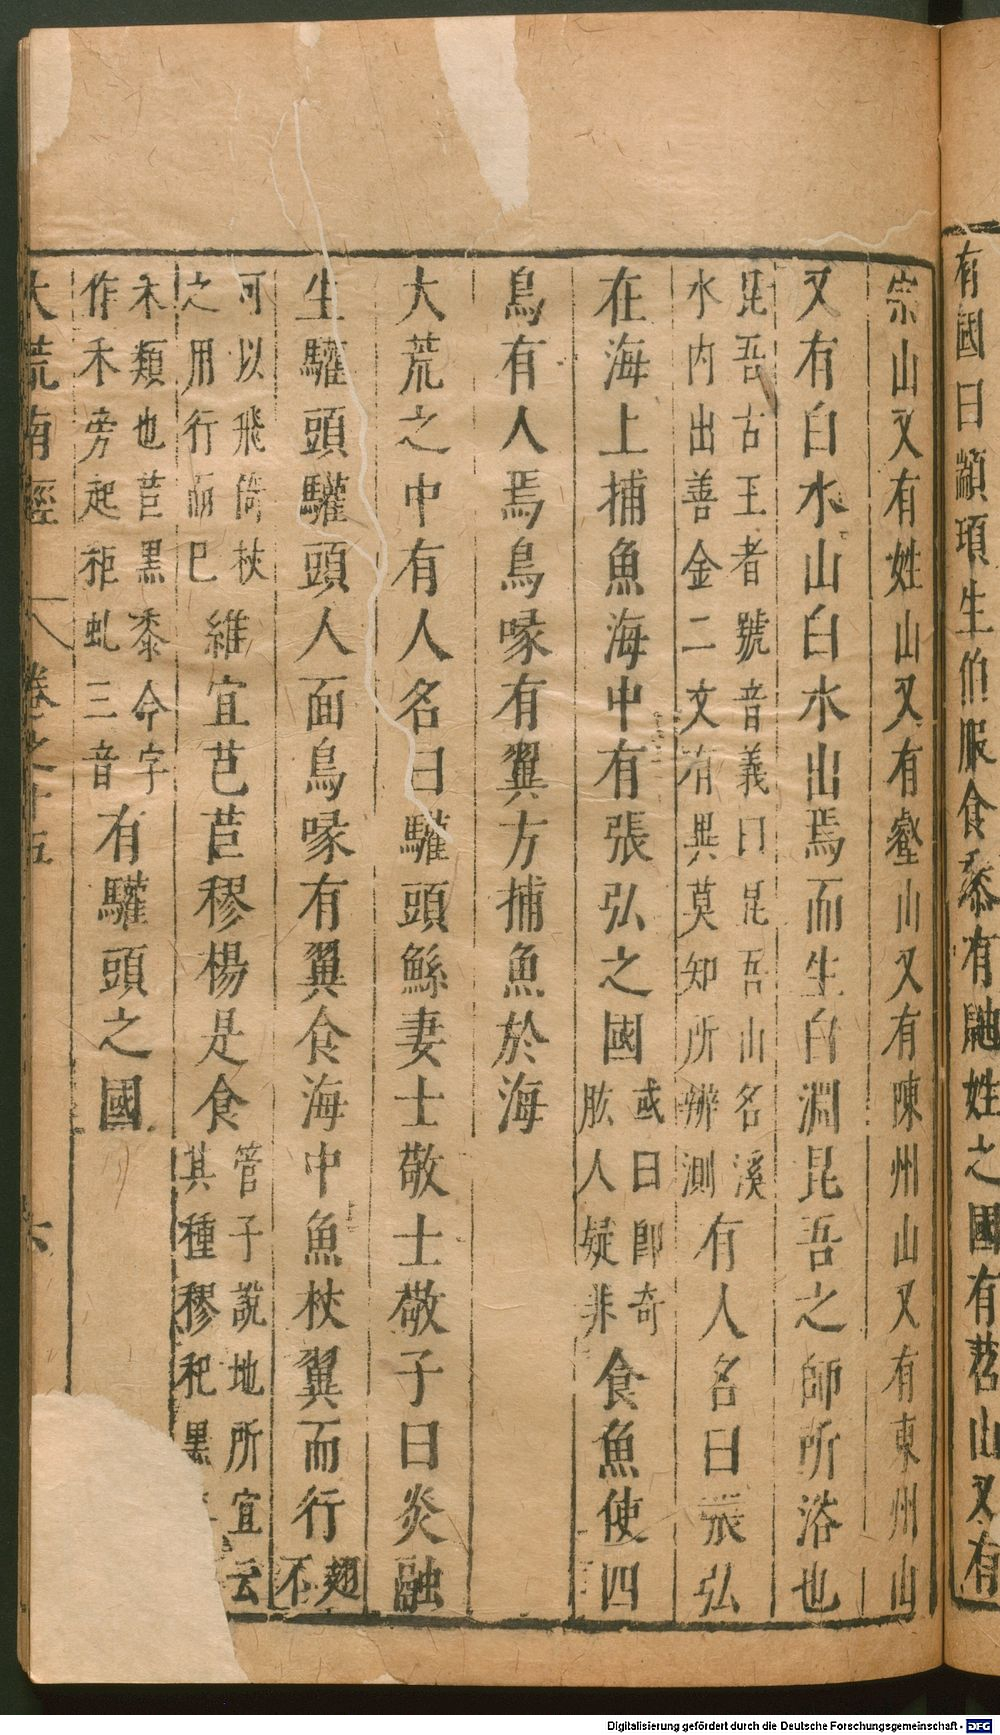 有國曰顓頊生伯服食黍有鼬姓之國有苕山又有
宗山又有姓山又有壑山又有陳州山又有東州山
又有白水山白水出焉而生白淵昆吾之師所浴也
昆吾古王者號音義曰昆吾山名溪
水内出善金二文有異莫知所辨測
有人名曰張弘
在海上捕魚海中有張弘之國
或曰即奇
肱人疑非
食魚使四
鳥有人焉鳥喙有翼方捕魚於海
大荒之中有人名曰驩頭鯀妻士敬士敬子曰炎融
生驩頭驩頭人面鳥喙有翼食海中魚杖翼而行
翅
不
可以飛倚杖
之用行而已
維宜芑苣穋楊是食
管子說地所宜云
其種穋秬黑
禾類也苣黑黍今字
作禾旁起秬虬三音
有驩頭之國
大荒南經 卷之十五 六
Digitalisierung gefördert durch die Deutsche Forschungsgemeinschaft - DFG